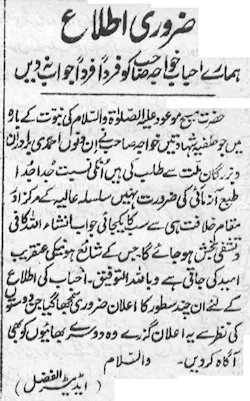 ضروری اطلاع
ہمارے احباب خواجہ صاحب کو فرداً فرداً جواب نہ دیں
حضرت مسیح موعود علیہ الصلوٰۃ والسلام کی نبوت کے بارہ
میں جو حلفیہ شہادتیں خواجہ صاحب نے ان دنوں احمدی برادران
و بزرگان ملت سے طلب کی ہیں انکی نسبت جدا جدا
طبع آزمائی کی ضرورت نہیں سلسلہ عالیہ کے مرکز اور
مقام خلافت ہی سے سب کا یکجائی جواب انشاء اللہ کافی
و تشفی بخش ہو جائے گا جس کے شائع ہونیکی عنقریب
امید کی جاتی ہے وباللہ التوفیق۔ احباب کی اطلاع
کے لئے ان چند سطور کا اعلان ضروری سمجھا گیا جن دوستوں
کی نظر سے یہ اعلان گزرے وہ دوسرے بھائیوں کو بھی
آگاہ کر دیں۔ والسلام
(ایڈیٹر الفضل)